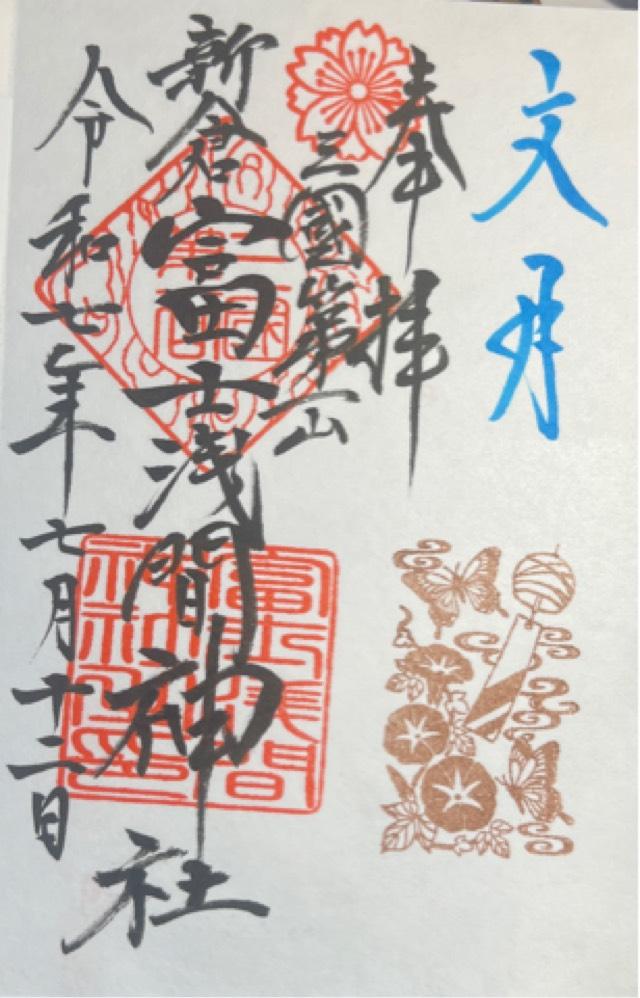 文月
奉拝
三國第一山
新倉富士浅間神社
令和七年七月十二日
富士浅間神社